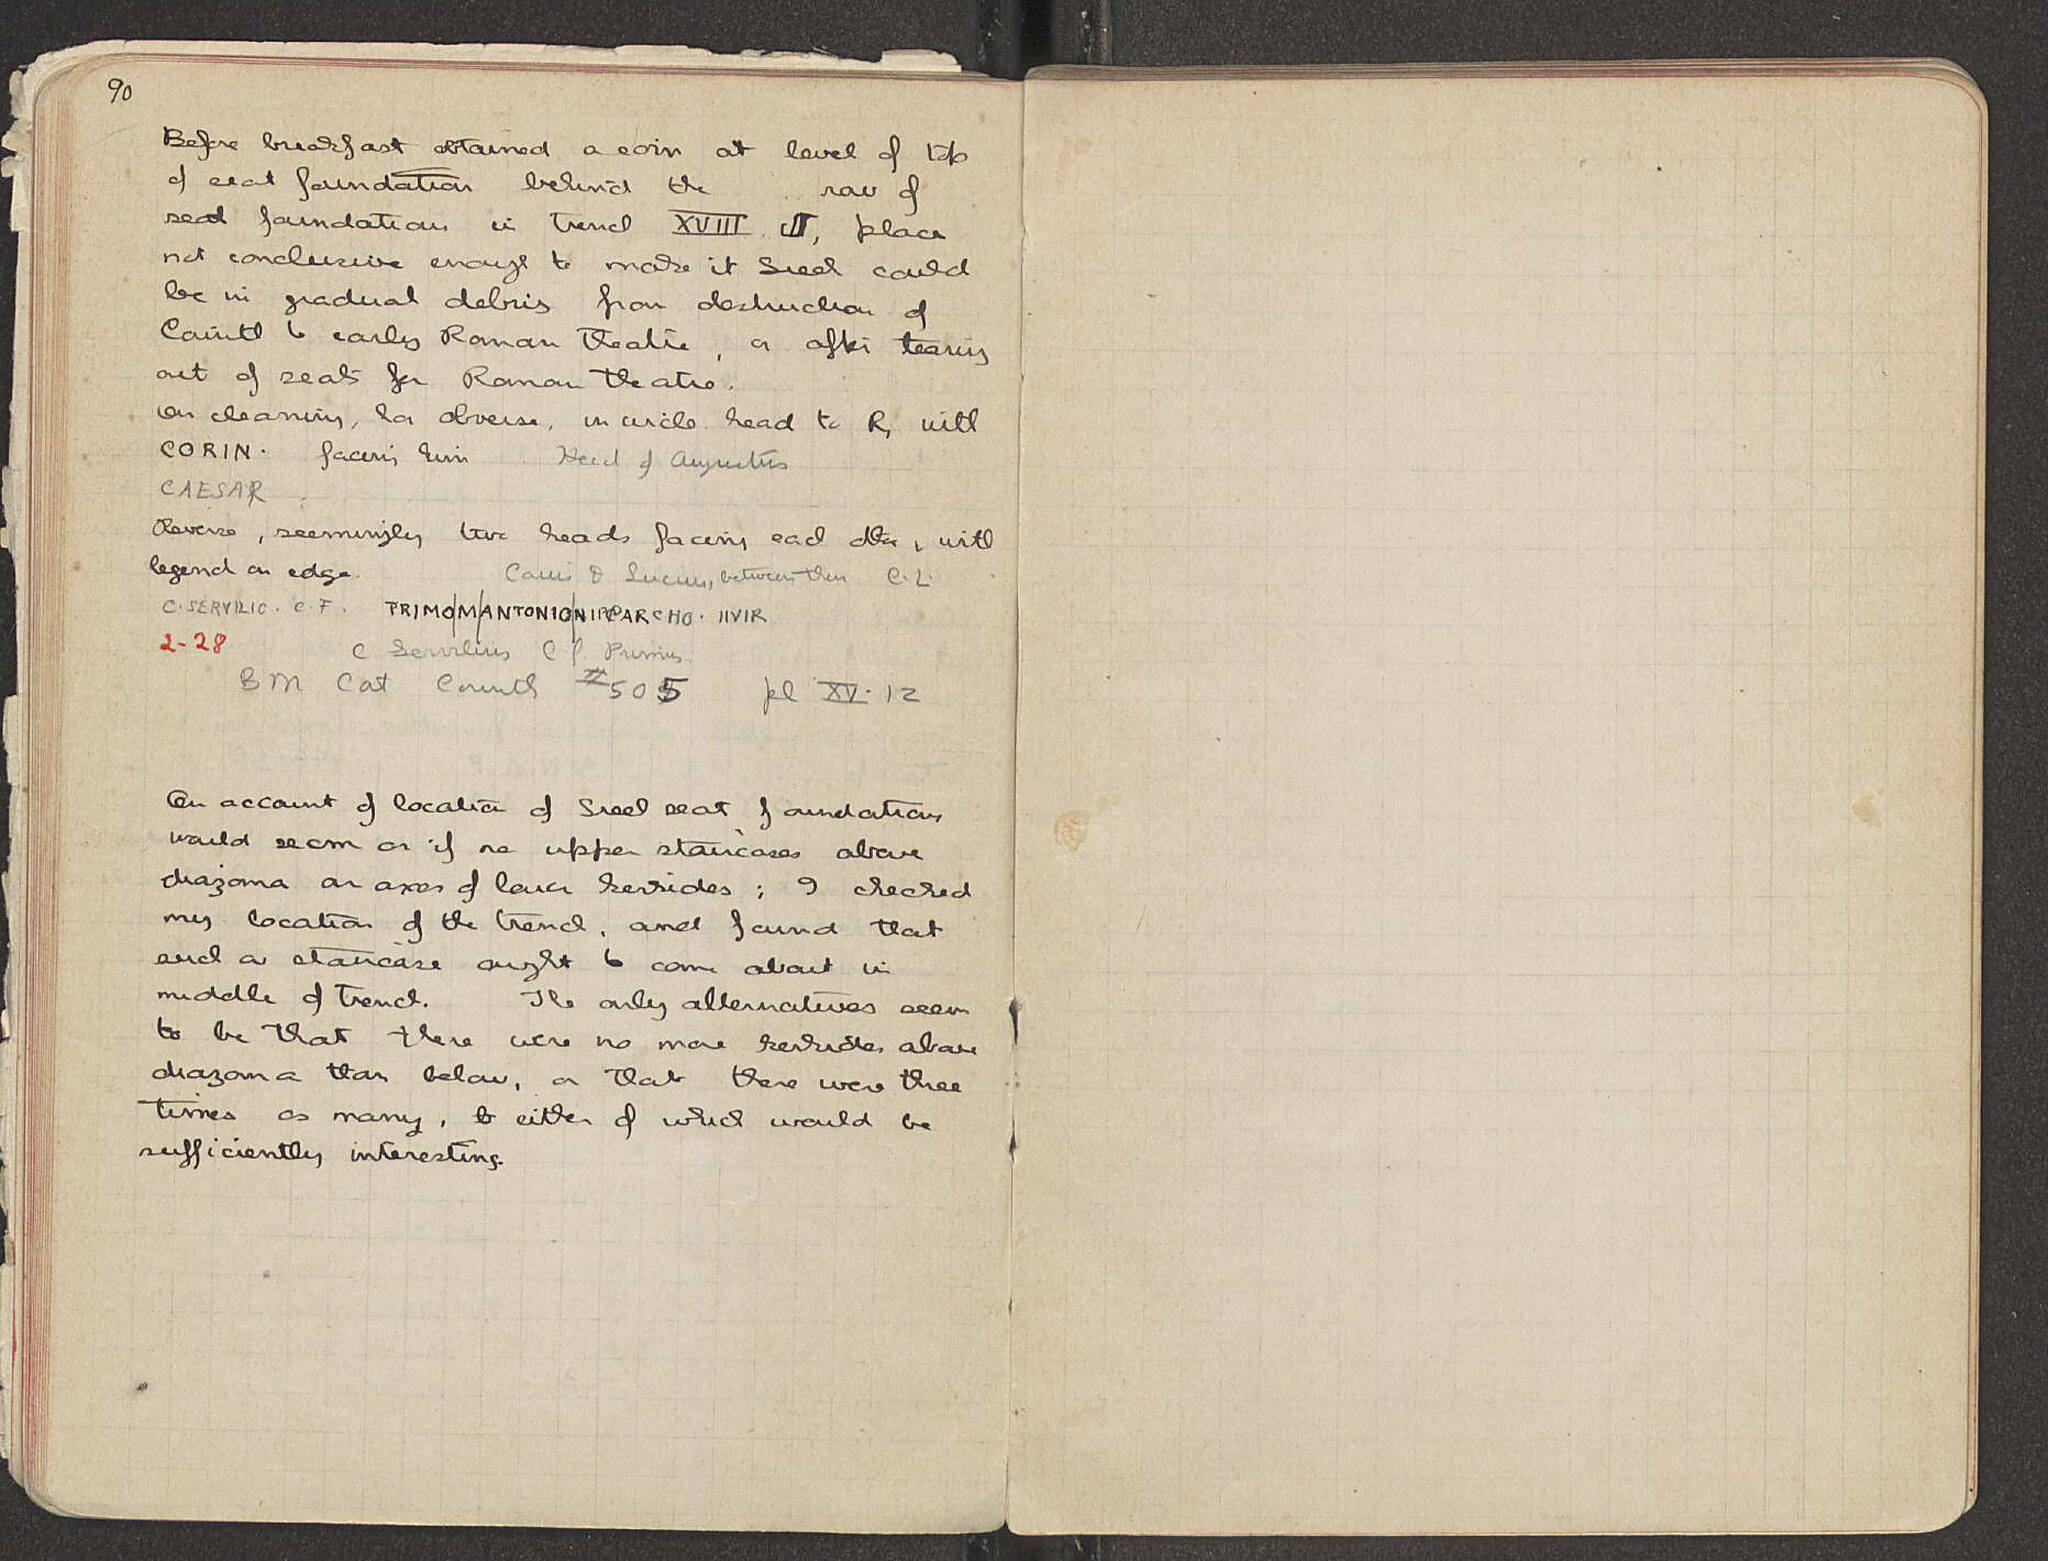 90
Before breakfast obtained a coin at level of top
of seat foundation behind the row of
seat foundations in trench XVIII, place
not conclusive enough to make it Greek could
be in gradual debris from destruction of
Corinth to early Roman theatre, or after tearing
out of seats for Roman theatre.
On cleaning, has obverse, in circle head to R, with
CORIN. facing him Head of Augustus
CAESAR
Reverse, seemingly two heads facing each other, with
legend on edge. Caius & Lucius, between them C.L.
C. SERVILIO. C. F. PRIMO/M/ANTONIO/NIPPARCHO. IIVIR
2-28 C Servilius C f. Primus.
BM Cat Corinth #505 pl XV. 12
On account of location of Greek seat foundations
would seem as if no upper staircases above
diazoma on axes of lower kerkides; I checked
my location of the trench, and found that
such a staircase ought to come about in
middle of trench. The only alternatives seem
to be that there were no more kerkides above
diazoma than below, or that there were three
times as many, either of which would be
sufficiently interesting.